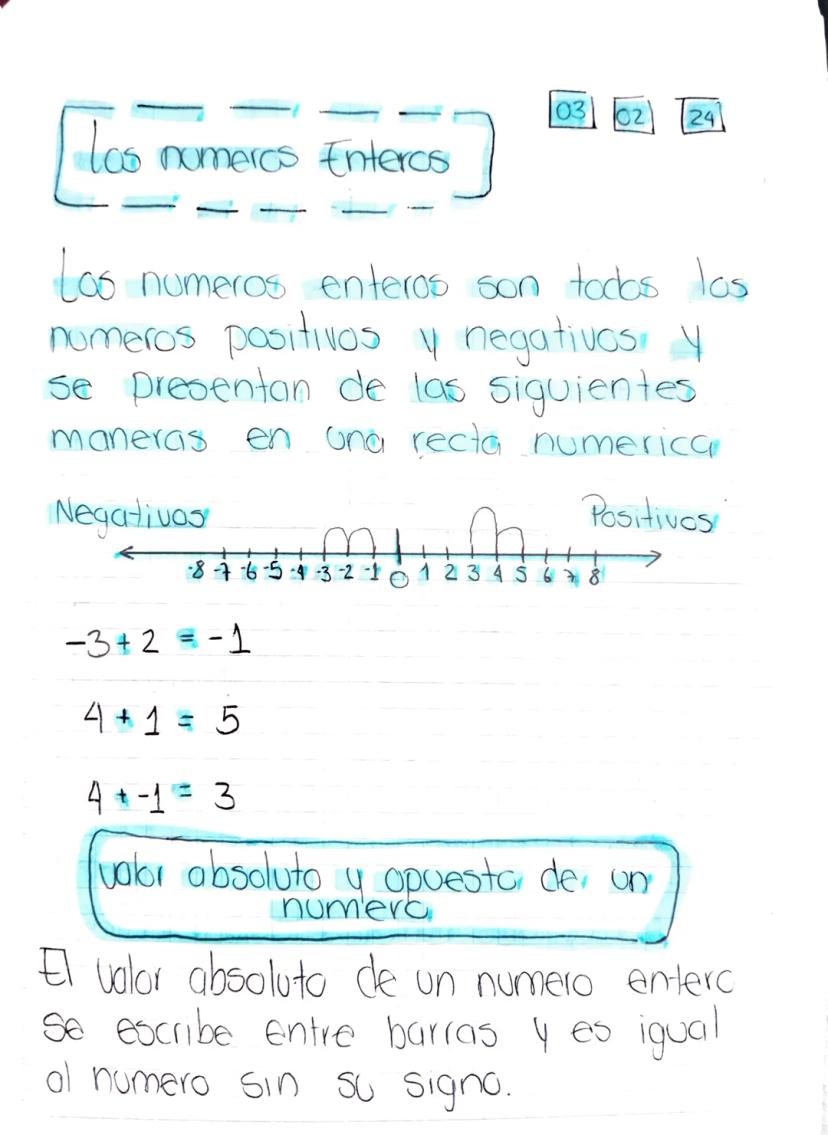 Los numeros Enteros
03 02 24
Los numeros enteros son todos los
numeros positivos y negativos y
se presentan de las siguientes
maneras en una recta numerica
Negativos Positivos
-8 -7 -6 -5 -4 -3 -2 -1 0 1 2 3 4 5 6 7 8
-3 + 2 = -1
4 + 1 = 5
4 + -1 = 3
valor absoluto y opuesto de un
numero
El valor absoluto de un numero entero
se escribe entre barras y es igual
al numero sin su signo.